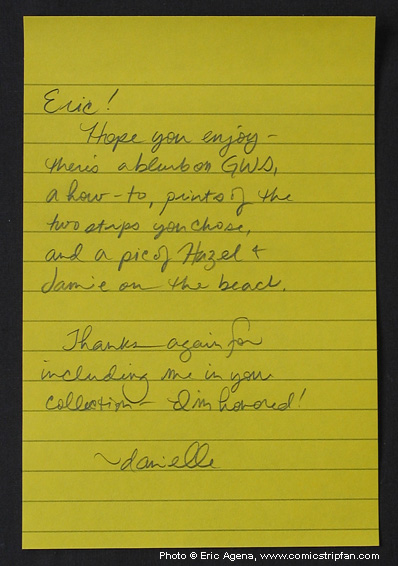 Eric!
Hope you enjoy -
there's a blurb on GWS,
a how-to, prints of the
two strips you chose,
and a pic of Hazel +
Jamie on the beach.
Thanks again for
including me in your
collection - I'm honored!
~danielle
Photo © Eric Agena, www.comicstripfan.com